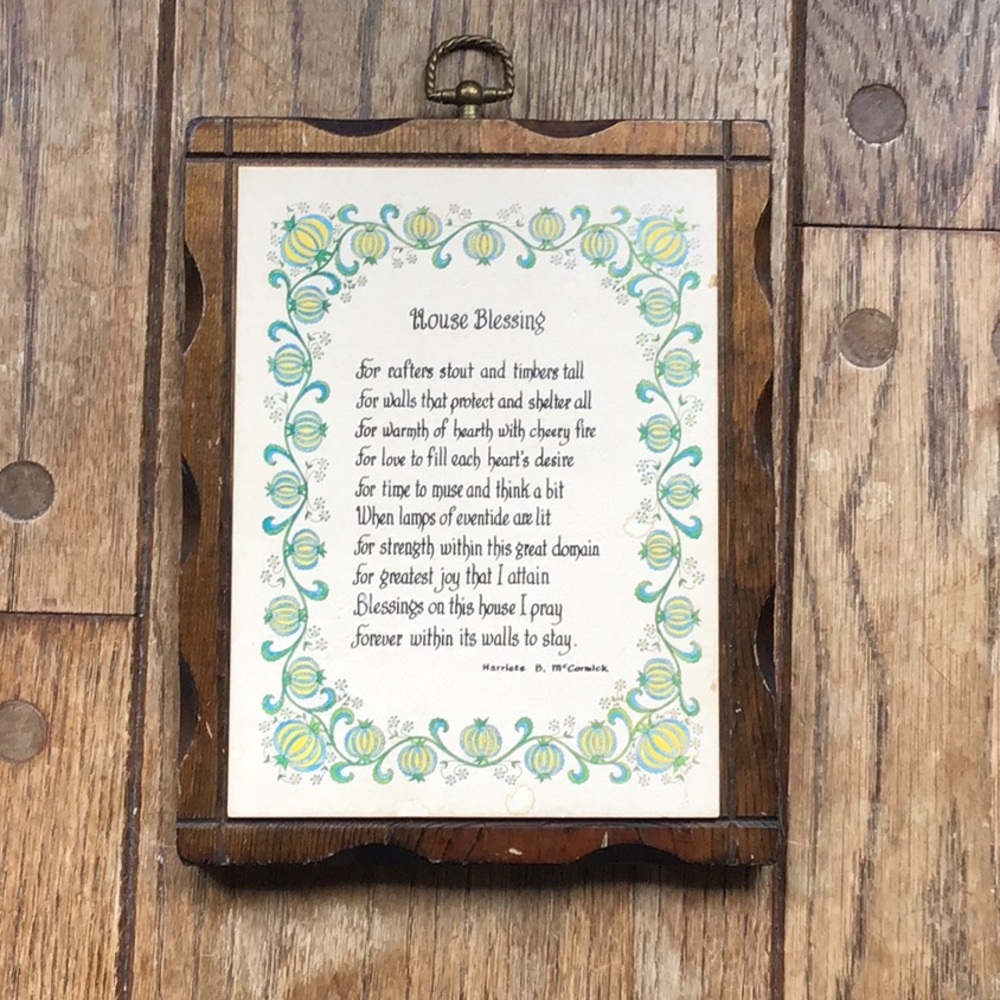 House Blessing
For rafters stout and timbers tall
For walls that protect and shelter all
For warmth of hearth with cheery fire
For love to fill each heart's desire
For time to muse and think a bit
When lamps of eventide are lit
For strength within this great domain
For greatest joy that I attain
Blessings on this house I pray
Forever within its walls to stay.
Harriete B. McCormick